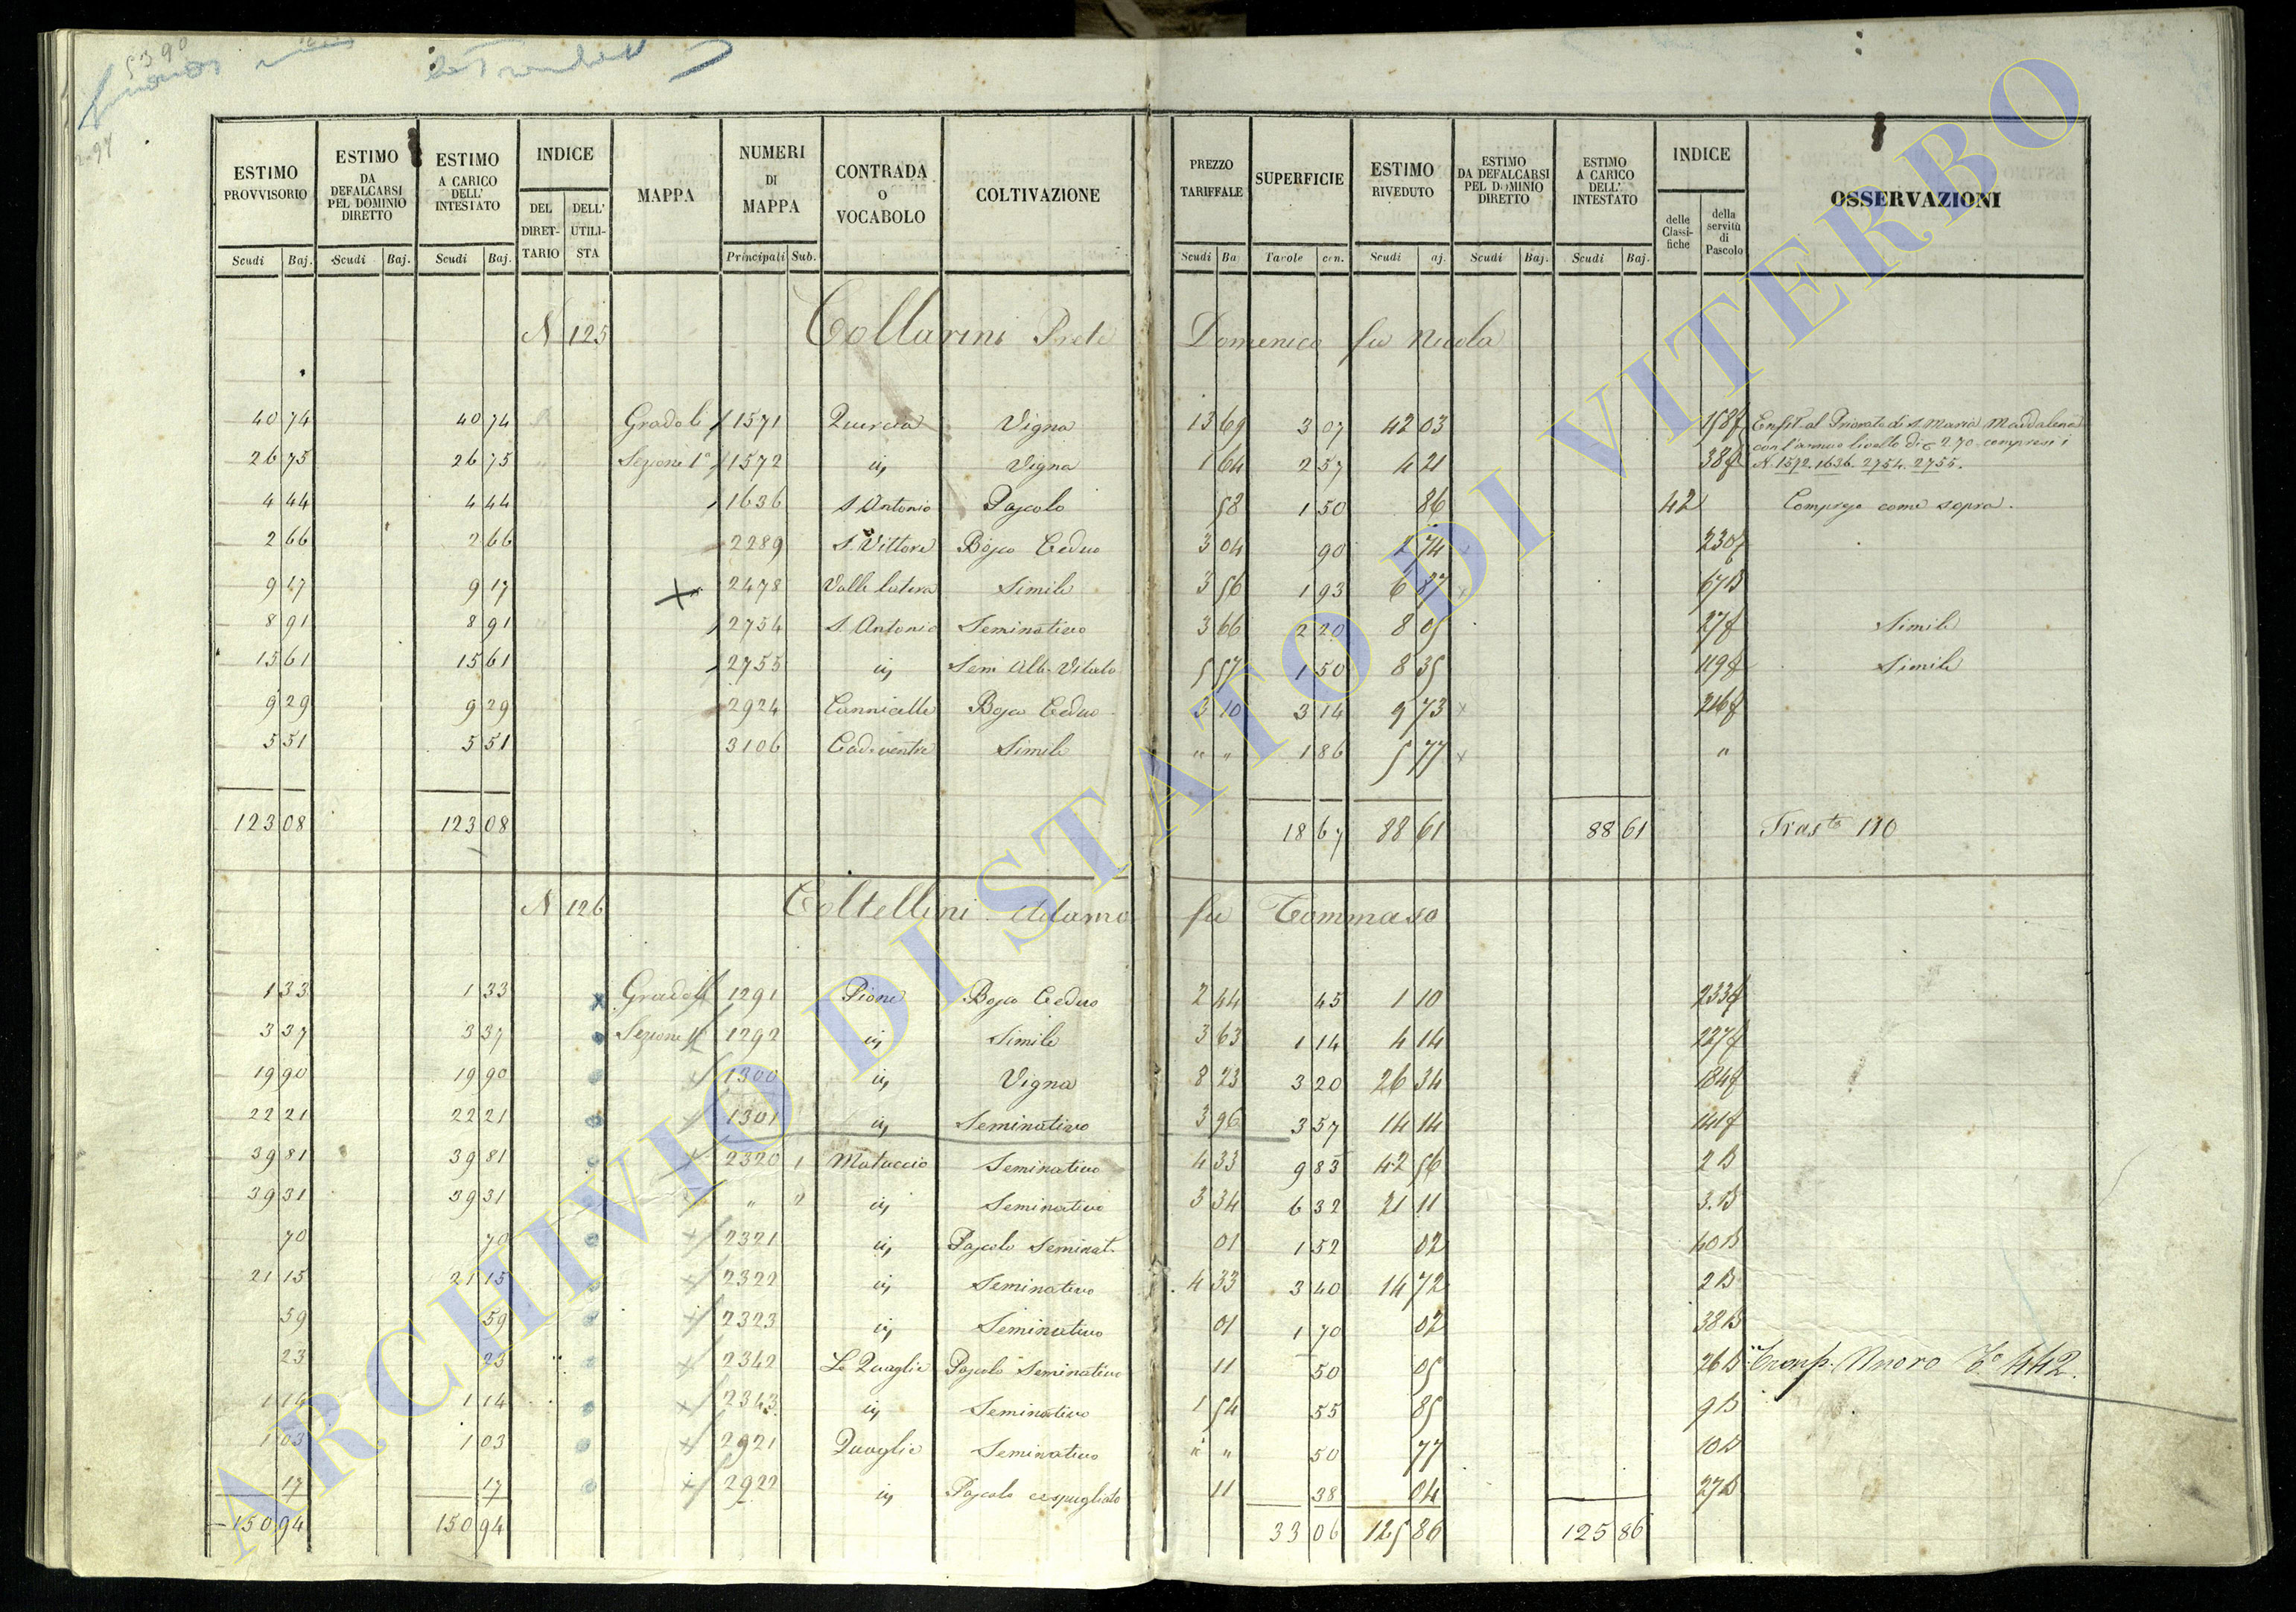 5390
2-94
ESTIMO PROVVISORIO | ESTIMO DA DEFALCARSI PEL DOMINIO DIRETTO | ESTIMO A CARICO DELL' INTESTATO | INDICE DEL DIRETTARIO | DELL' UTILISTA | MAPPA | NUMERI DI MAPPA | CONTRADA O VOCABOLO | COLTIVAZIONE | PREZZO TARIFFALE | SUPERFICIE | ESTIMO RIVEDUTO | ESTIMO DA DEFALCARSI PEL DOMINIO DIRETTO | ESTIMO A CARICO DELL' INTESTATO | INDICE delle Classifiche | della servitù di Pascolo | OSSERVAZIONI
Scudi Baj. Scudi Baj. Scudi Baj. Principali Sub. Scudi Ba Tavole cen. Scudi aj. Scudi Baj. Scudi Baj.
N 125 Collarini Prete Domenico fu Nicola
40 74 40 74 Gradoli 1571 Quercia Vigna 13 69 3 07 42 03 158f Enfit. al Priorato di S. Maria Maddalena
con l'annuo livello di 2.70 compresi i
26 75 26 75 Sezione 1a 1572 iv Vigna 1 64 2 57 4 21 38f N. 1572. 1636. 2754. 2755.
4 44 4 44 1636 S. Antonio Pascolo 58 1 50 86 42 Compreso come sopra.
2 66 2 66 2289 S. Vittore Bosco Ceduo 3 04 90 2 74 230f
9 17 9 17 2478 Valle latera Simile 3 56 1 93 6 87 67B
8 91 8 91 2754 S. Antonio Seminativo 3 66 2 20 8 05 27f Simile
15 61 15 61 2755 iv Sem. Alb. Vitato 5 57 1 50 8 35 119f Simile
9 29 9 29 2924 Cannicelle Bosco Ceduo 3 10 3 14 9 73 216f
5 51 5 51 3106 Simile " " 1 86 5 77 "
123 08 123 08 18 67 88 61 88 61 Trasto 110
N 126 Coltellini Adamo fu Tommaso
1 33 1 33 Gradoli 1291 Pione Bosco Ceduo 2 44 45 1 10 233f
3 37 3 37 Sezione 1a 1292 iv Simile 3 63 1 14 4 14 227f
19 90 19 90 1300 iv Vigna 8 23 3 20 26 34 184f
22 21 22 21 1301 iv Seminativo 3 96 3 57 14 14 141f
39 81 39 81 2320 1 Matuccio Seminativo 4 33 9 83 42 56 2B
39 31 39 31 " 2 iv Seminativo 3 34 6 32 21 11 3.B
70 70 2321 iv Pascolo Seminat. 01 1 52 02 40B
21 15 21 15 2322 iv Seminativo 4 33 3 40 14 72 2B
59 59 2323 iv Seminativo 01 1 70 02 38B
23 23 2342 Le Quaglie Pascolo Seminativo 11 50 05 26B 442.
1 14 1 14 2343 iv Seminativo 1 54 55 85 9B
1 03 1 03 2921 Quaglie Seminativo " " 50 77 10B
17 17 2922 iv Pascolo cespugliato 11 38 04 27B
150 94 150 94 33 06 125 86 125 86
ARCHIVIO DI STATO DI VITERBO